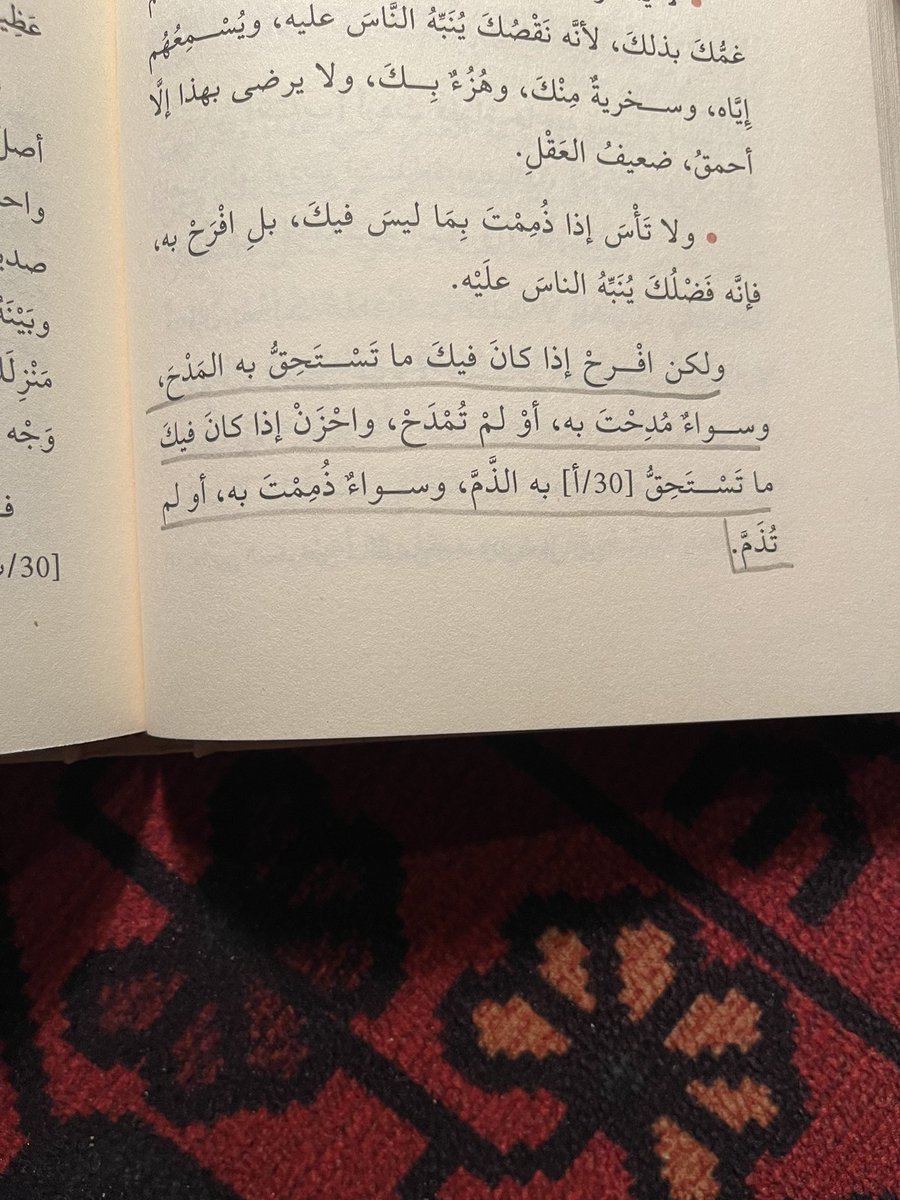 غمُّكَ بذلكَ، لأنَّه نَقْصُكَ يُنَبِّهُ النَّاسَ عليه، ويُسْمِعُهُم
إِيَّاه، وسخريةٌ مِنْكَ، وهُزُءٌ بِكَ، ولا يرضى بهذا إلَّا
أحمقُ، ضعيفُ العَقْلِ.
• ولا تَأْسَ إذا ذُمِمْتَ بِمَا ليسَ فيكَ، بلِ افْرَحْ به،
فإنَّه فَضْلُكَ يُنَبِّهُ الناسَ علَيْه.
ولكن افْرحْ إذا كانَ فيكَ ما تَسْتَحِقُّ به المَدْحَ،
وسواءٌ مُدِحْتَ به، أوْ لمْ تُمْدَحْ، واحْزَنْ إذا كانَ فيكَ
ما تَسْتَحِقُّ [30/أ] به الذَّمَّ، وسواءٌ ذُمِمْتَ به، أو لم
تُذَمَّ.
أصل
واحـ
صديـ
وبَيْنَهُ
مَنْزِلَـ
وَجْه
فـ
[30/